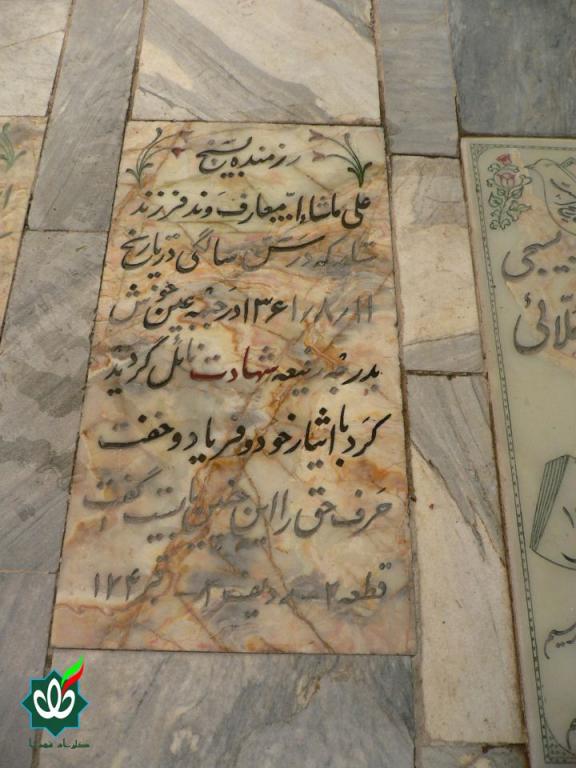 رزمنده بسیج
علی ماشاءالله معارف وند فرزند
ستار که در سن سالگی در تاریخ
۱۳۶۱/۸/۱۱ در جبهه عین خوش
بدرجه رفیعه شهادت نائل گردید
کرد با ایثار خود فریاد و خفت
حرف حق را این چنین بایست گفت
قطعه ۲ - ردیف ۳ - قبر ۱۷۴
بسیجی